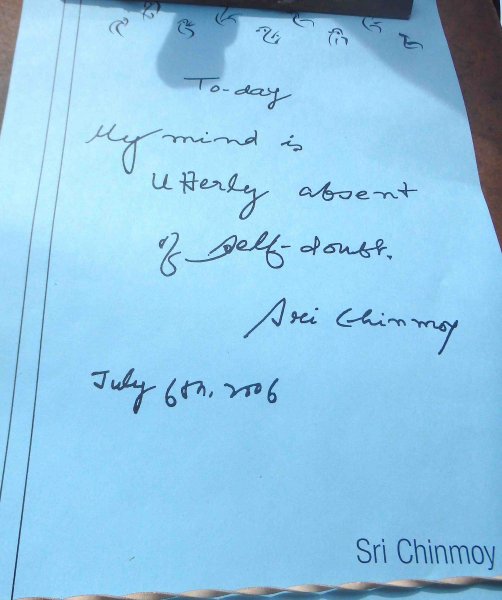 To-day
My mind is
Utterly absent
of self-doubt.
Sri Chinmoy
July 6th, 2006
Sri Chinmoy